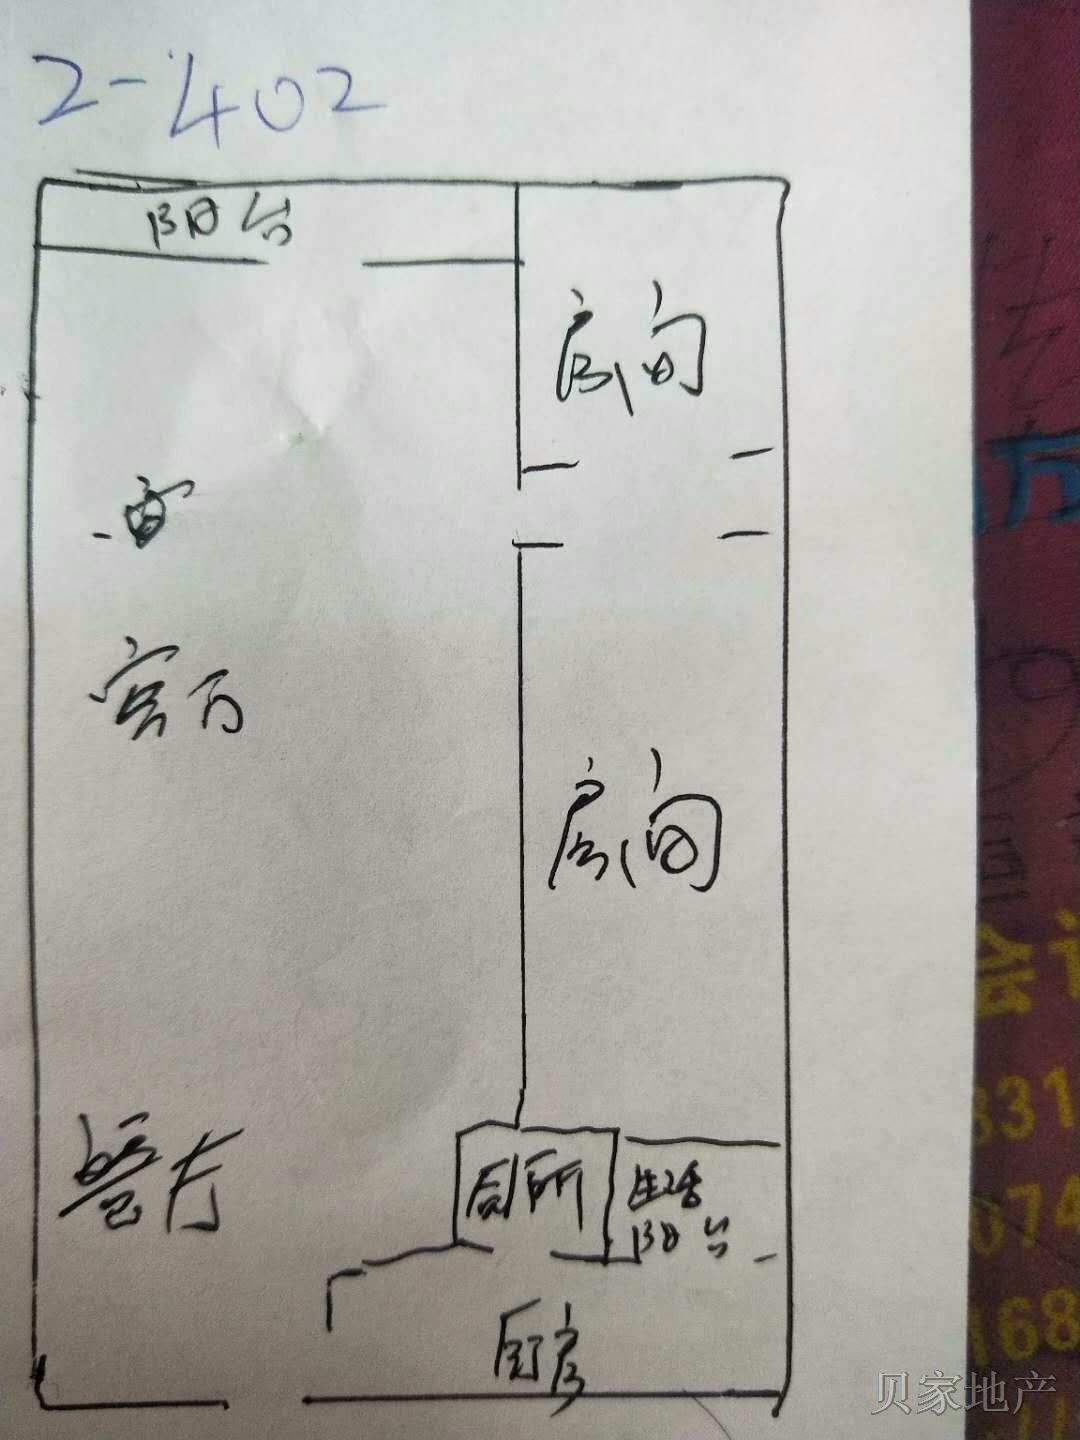 2-402
阳台
房间
客厅
房间
餐厅
厕所
生活
阳台
厨房
331
074
168
贝家地产